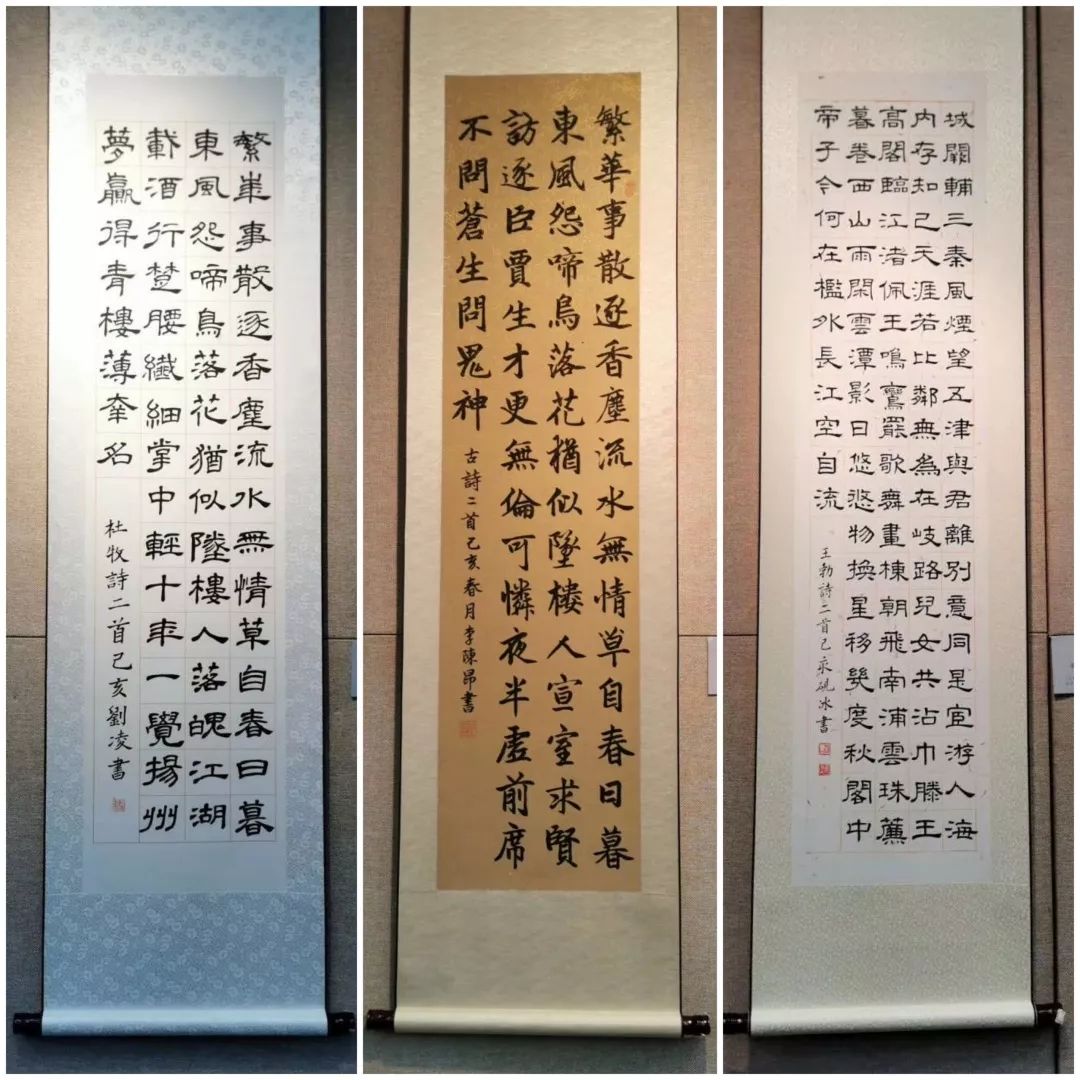 繁華事散逐香塵流水無情草自春日暮
東風怨啼鳥落花猶似墜樓人落魄江湖
載酒行楚腰纖細掌中輕十年一覺揚州
夢贏得青樓薄倖名
杜牧詩二首己亥劉凌書
繁華事散逐香塵流水無情草自春日暮
東風怨啼鳥落花猶似墜樓人宣室求賢
訪逐臣賈生才更無倫可憐夜半虛前席
不問蒼生問鬼神
古詩二首己亥春月李陳昂書
城闕輔三秦風煙望五津與君離別意同是宦游人海
内存知己天涯若比鄰無為在岐路兒女共沾巾滕王
高閣臨江渚佩玉鳴鸞罷歌舞畫棟朝飛南浦雲珠簾
暮卷西山雨閑雲潭影日悠悠物換星移幾度秋閣中
帝子今何在檻外長江空自流
王勃詩二首己亥硯冰書